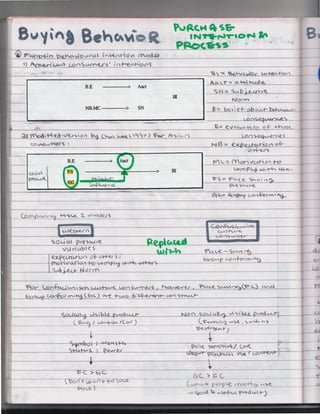 Buying Behavior
PURCHASE-
INTENTION &
PROCESS
Fishbein behavioural intention model
1) American consumers' intentions
B.E → Aact
BI
NB.MC → SN
BI = Behavior Intention
Aact = attitude
SN = Subjective
Norm
B = belief about behaviour
consequences
E = evaluation of those
consequences
NB = expectation of
others
MC = Motivation to
comply with others
FS = Face Saving
pressure
GC = Group conformity
2) Modified version by Chan Lee (199) For Asian
consumers:
B.E → Aact
BI
Social
pressure
FS
GC
influence
Comparing these 2 models
Western
Confucian
culture
consumer
Social pressure
variables
(expectation of others;
motivation to comply with others
Subject Norm
Replaced
with
Face-Saving
Group conformity
For Confucianism culture consumers, however, Face saving (FS) and
Group conforming (GC) are two different construct
Socially visible product
(Bag / watch / car)
Non socially visible product
(Family use, such as
Detergent)
Symbol & wealth
status & Power
Price sensitive / care
about practical use / content
FS > GC
(Don't want to lose
face)
GC > FS
(what people mostly use
is good & useful product)